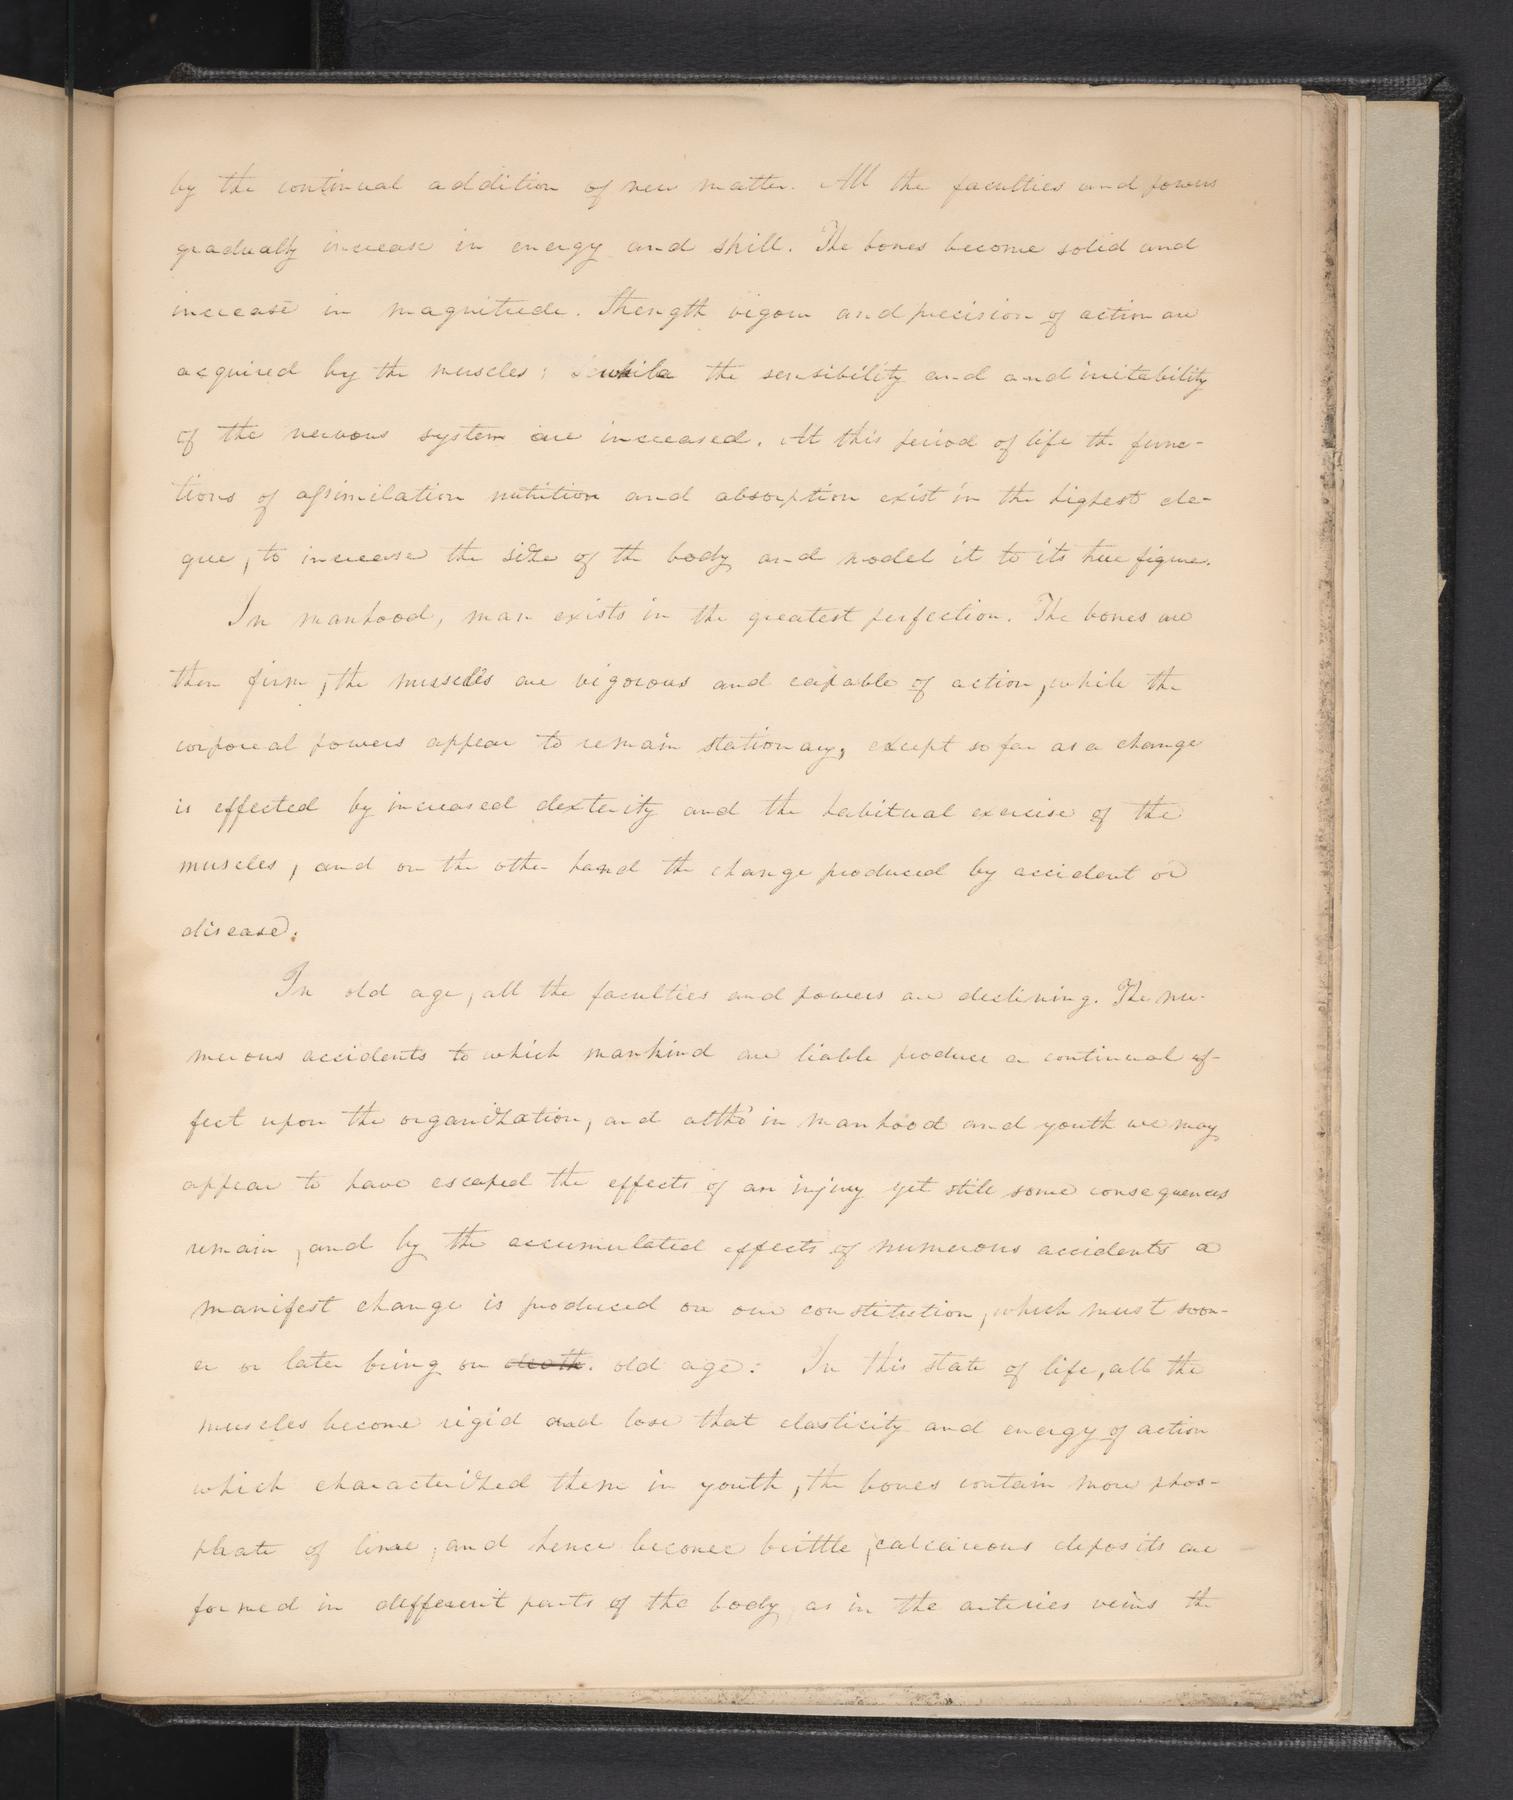 by the continual addition of new matter. All the faculties and powers
gradually increase in energy and skill. The bones become solid and
increase in magnitude. Strength vigour and precision of action are
acquired by the muscles; while the sensibility and and irritability
of the nervous system are increased. At this period of life the func-
tions of assimilation nutrition and absorption exist in the highest de-
gree, to increase the size of the body and model it to its true figure.
In manhood, man exists in the greatest perfection. The bones are
then firm, the muscles are vigorous and capable of action, while the
corporeal powers appear to remain stationary, except so far as a change
is effected by increased dexterity and the habitual exercise of the
muscles, and on the other hand the change produced by accident or
disease.
In old age, all the faculties and powers are declining. The nu-
merous accidents to which mankind are liable produce a continual ef-
fect upon the organization, and altho' in manhood and youth we may
appear to have escaped the effects of an injury yet still some consequences
remain, and by the accumulated effects of numerous accidents a
manifest change is produced on our constitution, which must soon-
er or later bring on death. old age: In this state of life, all the
muscles become rigid and lose that elasticity and energy of action
which characterized them in youth, the bones contain more phos-
phate of lime, and hence become brittle, calcareous deposits are
formed in defferent parts of the body as in the arteries veins the